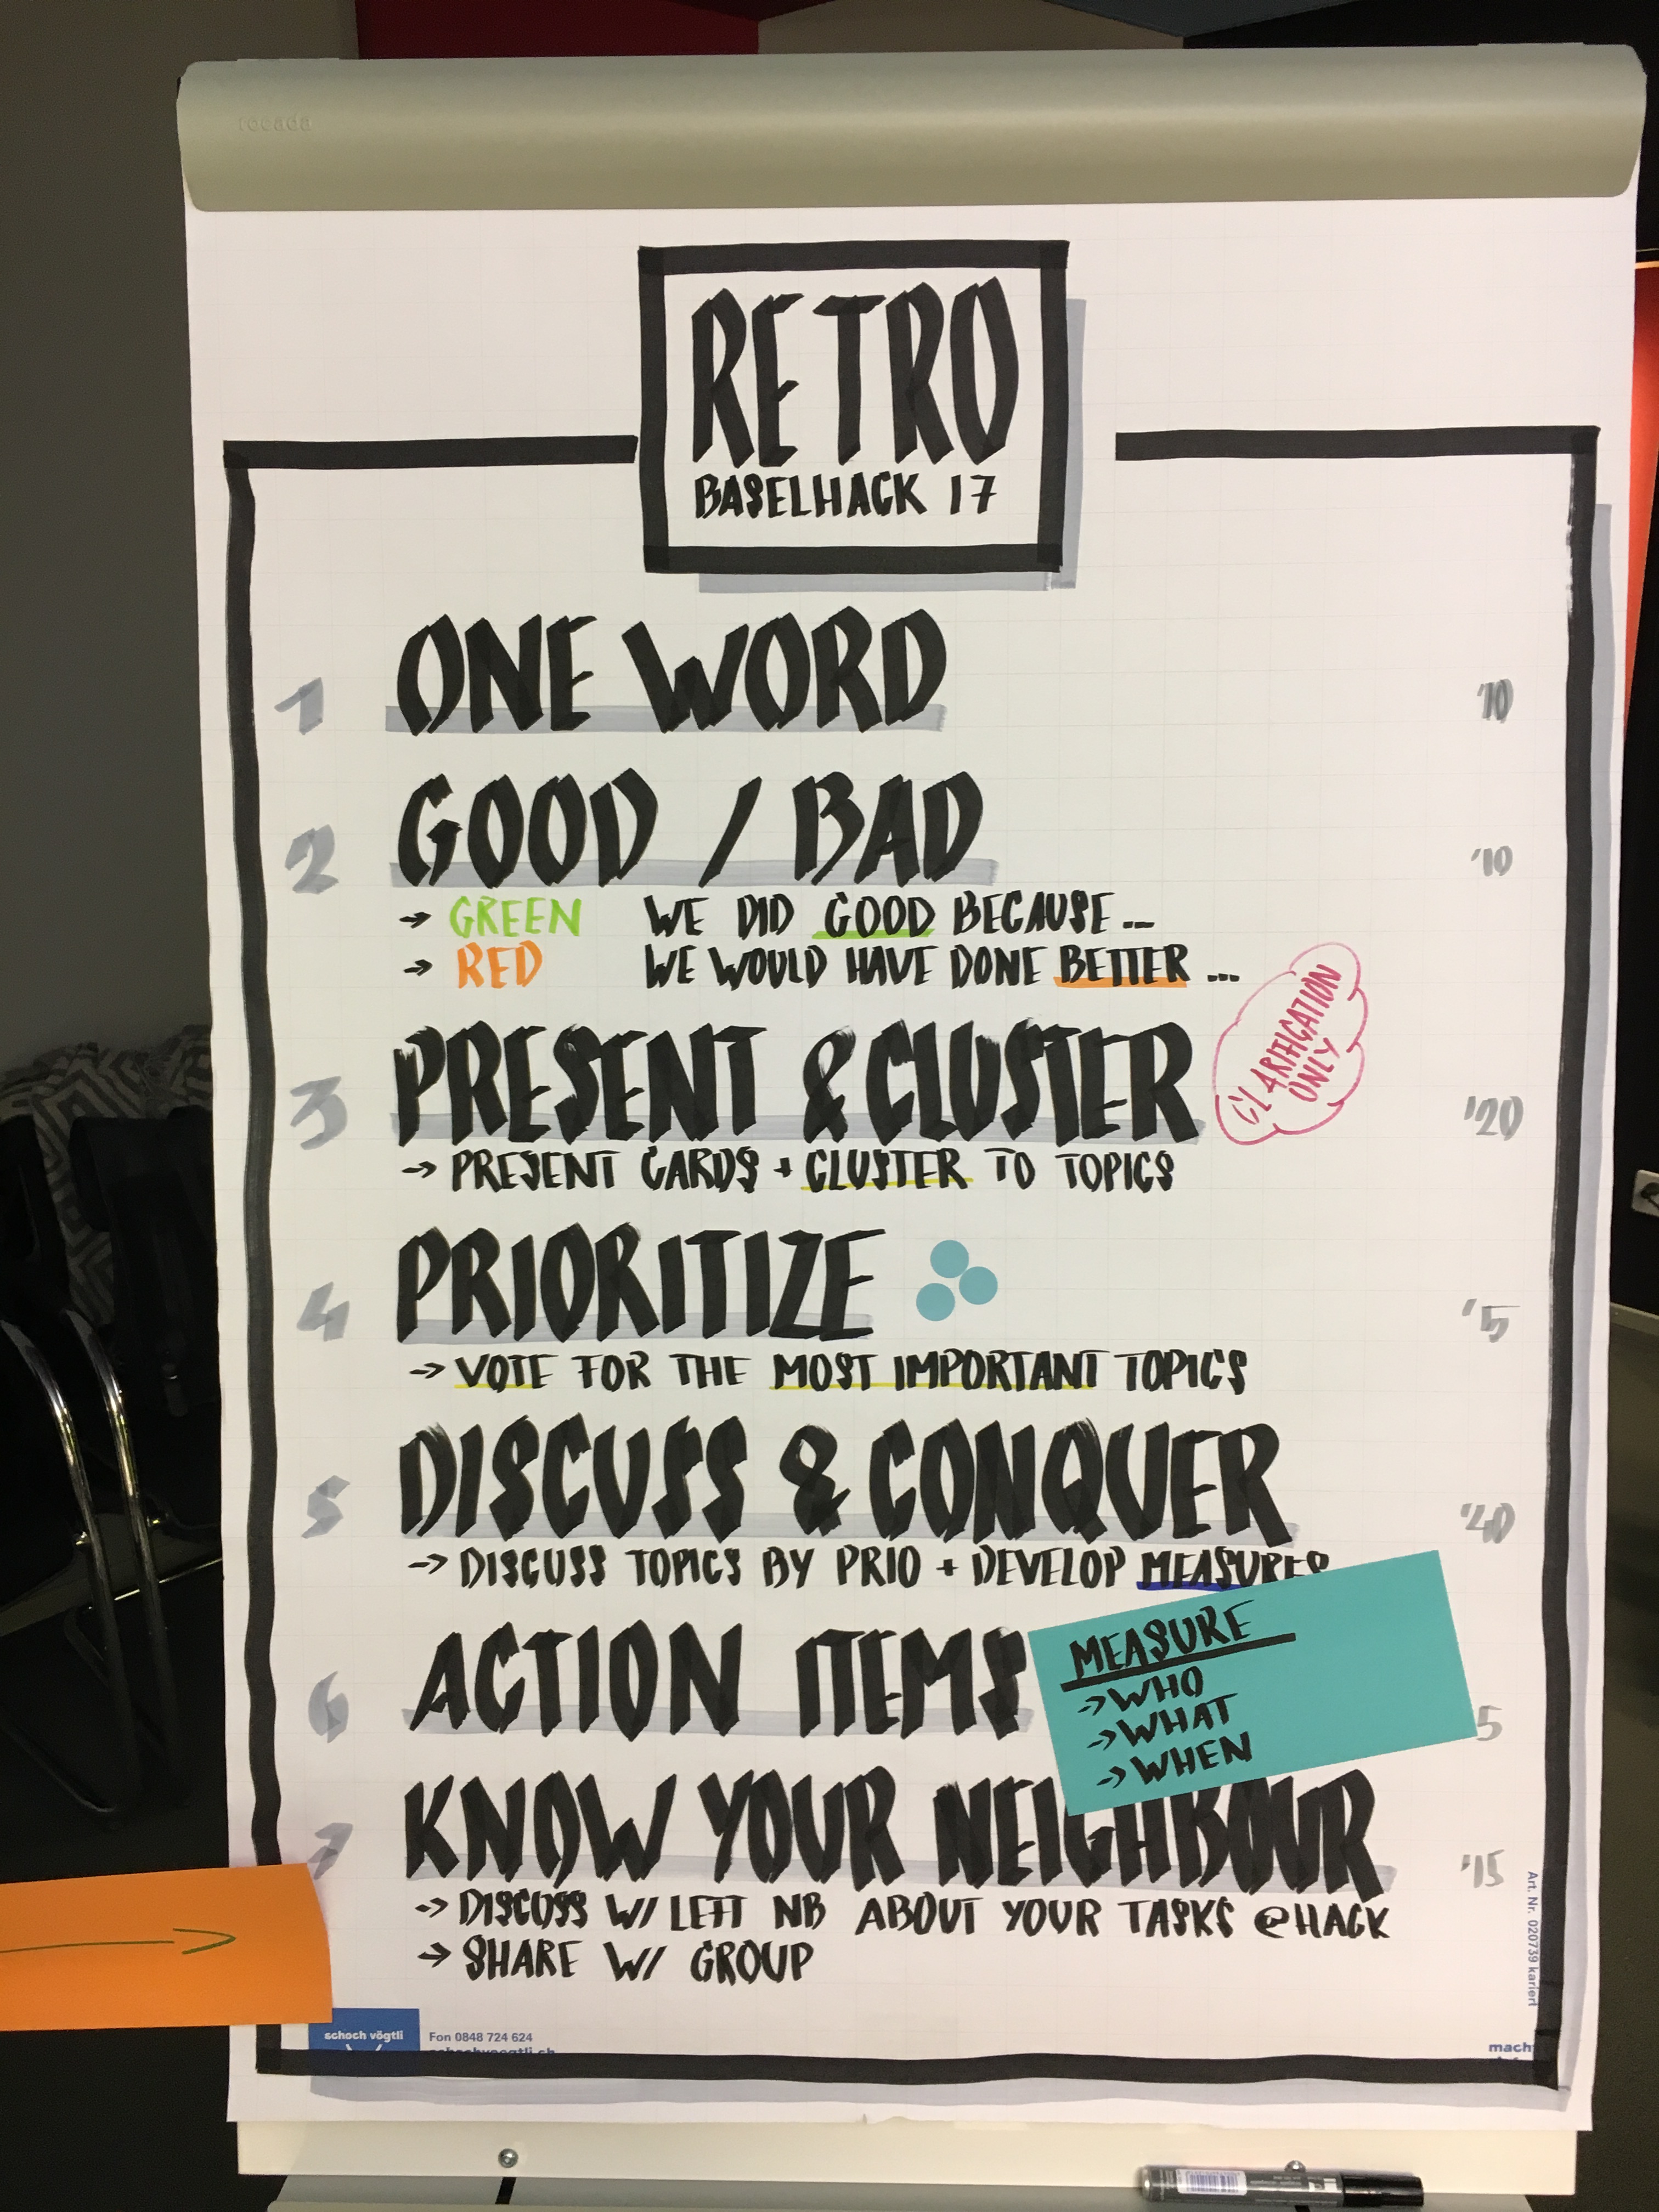 rocada
RETRO
BASELHACK 17
1 ONE WORD '10
2 GOOD / BAD '10
→ GREEN WE DID GOOD BECAUSE ...
→ RED WE WOULD HAVE DONE BETTER ...
3 PRESENT & CLUSTER '20
CLARIFICATION
ONLY
→ PRESENT CARDS + CLUSTER TO TOPICS
4 PRIORITIZE '5
→ VOTE FOR THE MOST IMPORTANT TOPICS
5 DISCUSS & CONQUER '40
→ DISCUSS TOPICS BY PRIO + DEVELOP MEASURES
6 ACTION ITEMS 5
MEASURE
→ WHO
→ WHAT
→ WHEN
7 KNOW YOUR NEIGHBOUR '15
→ DISCUSS W/ LEFT NB ABOUT YOUR TASKS @HACK
→ SHARE W/ GROUP
Art. Nr. 020739 kariert
schoch vögtli
Fon 0848 724 624
schochvoegtli.ch
mach